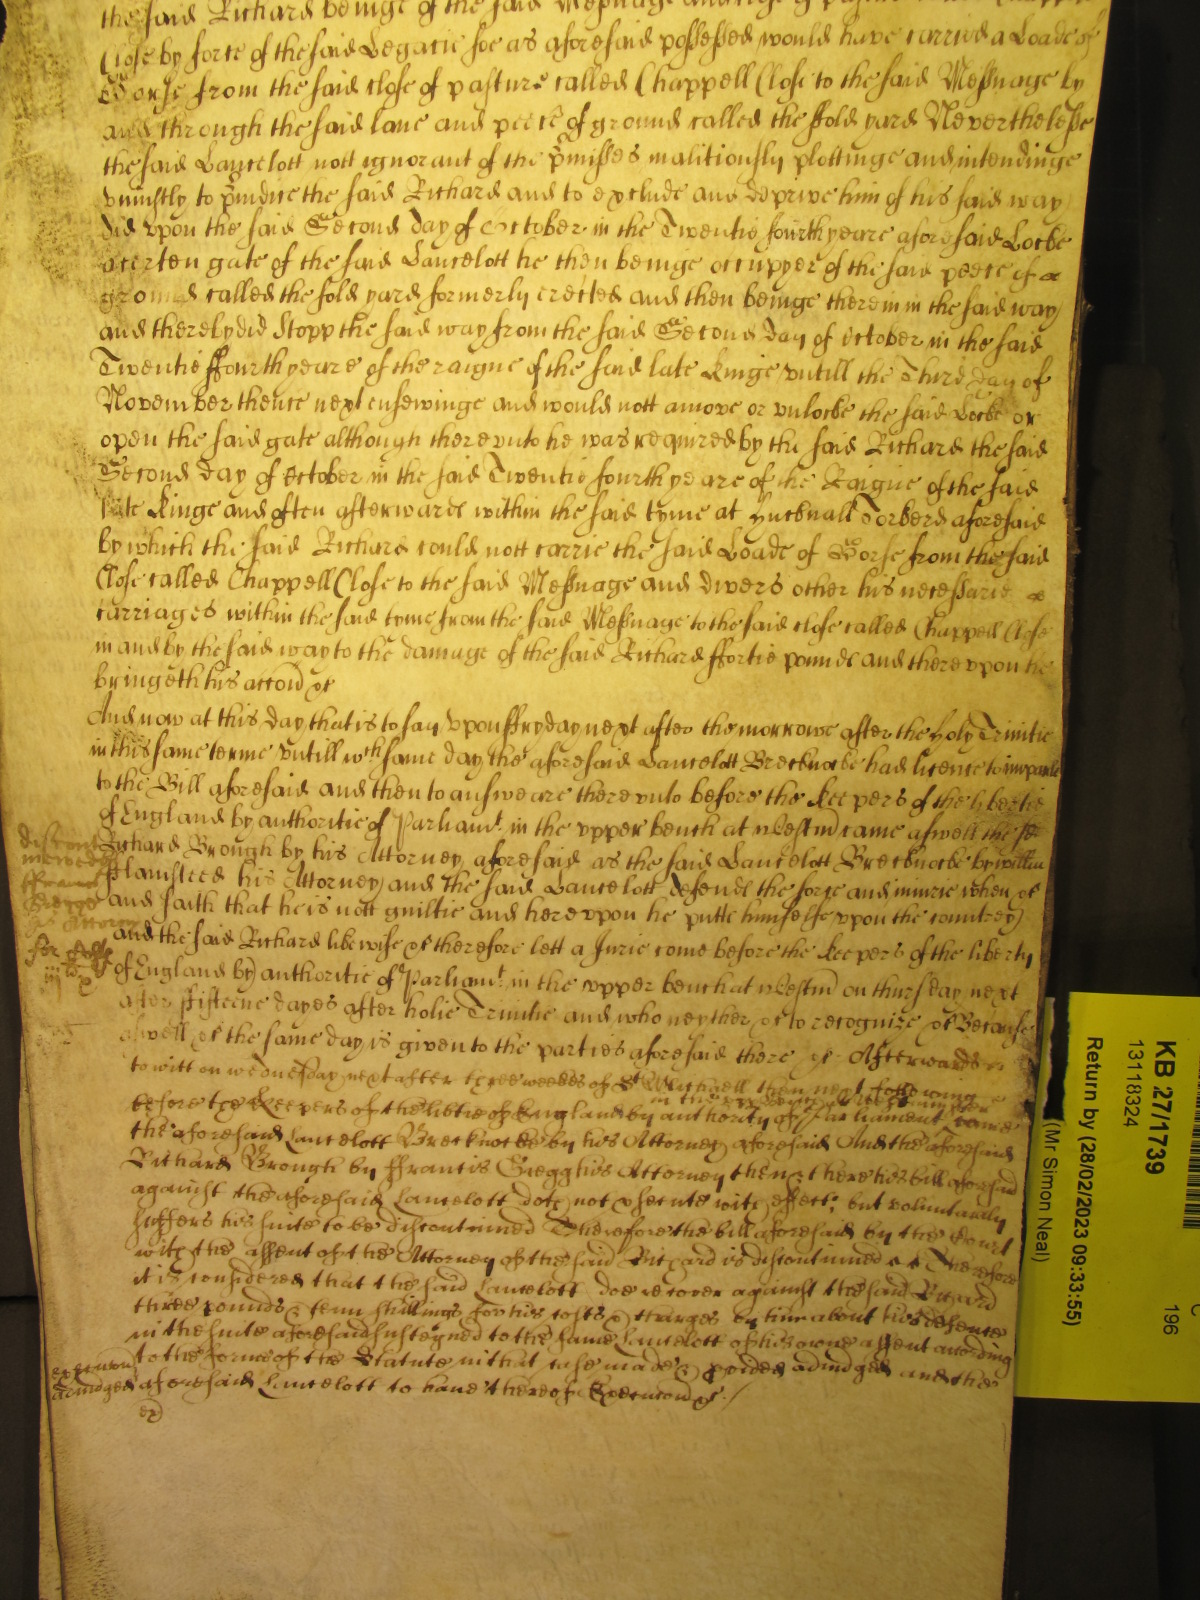 the said Richard beinge of the said Messuage
Close by force of the said Legacie soe as aforesaid possessed would have carried a Loade of
Gorse from the said close of pasture called Chappell Close to the said Messuage by
and through the said lane and peece of ground called the ffold yard Neverthelesse
the said Lancelott nott ignorant of the p̄misses malitiously plottinge and intendinge
uniustly to p̄iudice the said Richard and to exclude and deprive him of his said way
did upon the said Second day of October in the Twentie fourth yeare aforesaid Locke
a certen gate of the said Lancelott he then beinge occupyer of the said peece of
ground called the fold yard formerly erected and then beinge therein in the said way
and thereby did stopp the said way from the said Second day of October in the said
Twentie ffourth yeare of the raigne of the said late Kinge untill the Third day of
November thence next ensewinge and would nott amove or unlocke the said Locke or
open the said gate although thereunto he was required by the said Richard the said
Second day of October in the said Twentie fourth yeare of the Raigne of the said
late Kinge and often afterwards within the said tyme at Hucknall Torkerd aforesaid
by which the said Richard could nott carrie the said Loade of Gorse from the said
Close called Chappell Close to the said Messuage and divers other his necessarie
carriages within the said tyme from the said Messuage to the said close called Chappell Close
in and by the said way to the damage of the said Richard ffortie pounds and thereupon he
bringeth his accōn &c
And now at this day that is to say upon ffryday next after the morrowe after the holy Trinitie
in this same terme untill wch same day the aforesaid Lancelott Brecknocke had licence to imparle
to the Bill aforesaid and then to answeare thereunto before the keepers of the libertie
of England by authoritie of Parliamt. in the upper bench at Westmr came aswell the sd
Richard Brough by his Attorney aforesaid as the said Lancelott Brecknocke by Willm
Plaimsteed his Attorney and the said Lancelott defends the force and iniurie when &c
and saith that he is nott guiltie and hereupon he putts himselfe upon the countrey
and the said Richard likewise &c therefore lett a Jurie come before the keepers of the liberty
of England by authoritie of Parliamt. in the upper bench at Westmr on thursday next
after ffifteene dayes after holie Trinitie and who neyther &c to recognize &c Because
aswell &c the same day is given to the parties aforesaid there &c Afterwards
to witt on wednesday next after three weekes of St Michaell then next following
before the Keepers of the libtie of England by authority of Parliament came
the aforesaid Lancelott Brecknocke by his Attorney aforesaid And the aforesaid
Richard Brough by ffrancis Gregg his Attorney then & there his bill aforesaid
against the aforesaid Lancelott doth not p̄secute with effect; but voluntarily
suffers his suite to be discontinued Therefore the bill aforesaid by the Court
with the assent of the Attorney of the said Richard is discontinued &c Therefore
it is considered that the said Lancelott doe recover against the said Richard
three pounds & tenn shillings for his costs & charges by him about his defence
in the suite aforesaid susteyned to the same Lancelott of his owne assent according
to the forme of the Statute in that case made & p̄vided adiudged and the
aforesaid Lancelott to have thereof Execucōn &c
adiudged
KB 27/1739
13118324
196
Return by (28/02/2023 09:33:55)
(Mr Simon Neal)